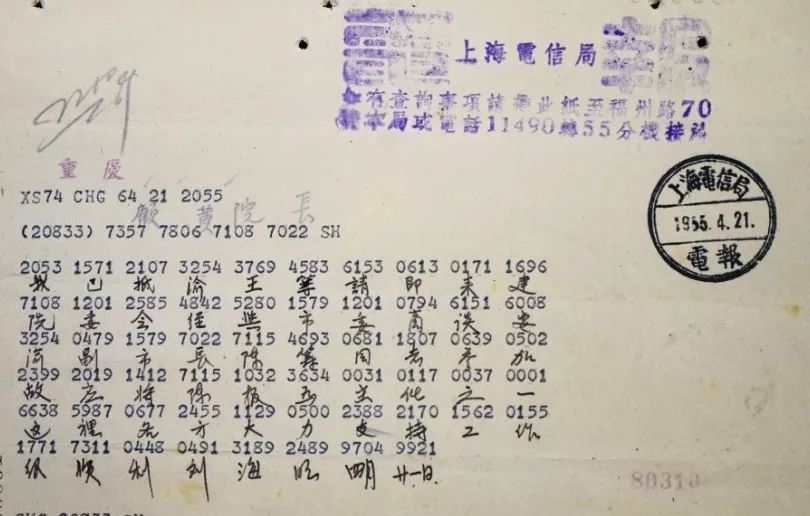 上海電信局
如有查詢事項請帶此紙至福州路70
號本局或電話11490轉55分機接洽
重慶
XS74 CHG 64 21 2055
顧黃院長
(20833) 7357 7806 7108 7022 SH
上海電信局
1955.4.21.
電報
2053 1571 2107 3254 3769 4583 6153 0613 0171 1696
已抵渝王等請即来建
7108 1201 2585 4842 5280 1579 1201 0794 6151 6008
院委会经與市委商谈安
3254 0479 1579 7022 7115 4693 0681 1807 0639 0502
渝副市長陈筹同志参加
2399 2019 1412 7115 1032 3634 0031 0117 0037 0001
故应将陈报为主化之一
6638 5987 0677 2455 1129 0500 2388 2170 1562 0155
这裡各方大力支持工作
1771 7311 0448 0491 3189 2489 9704 9921
很順利到海四月廿一日
80310